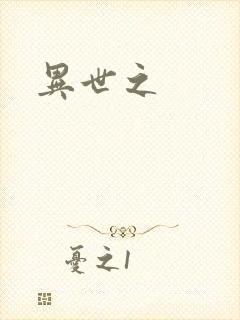 異世之
憂之1